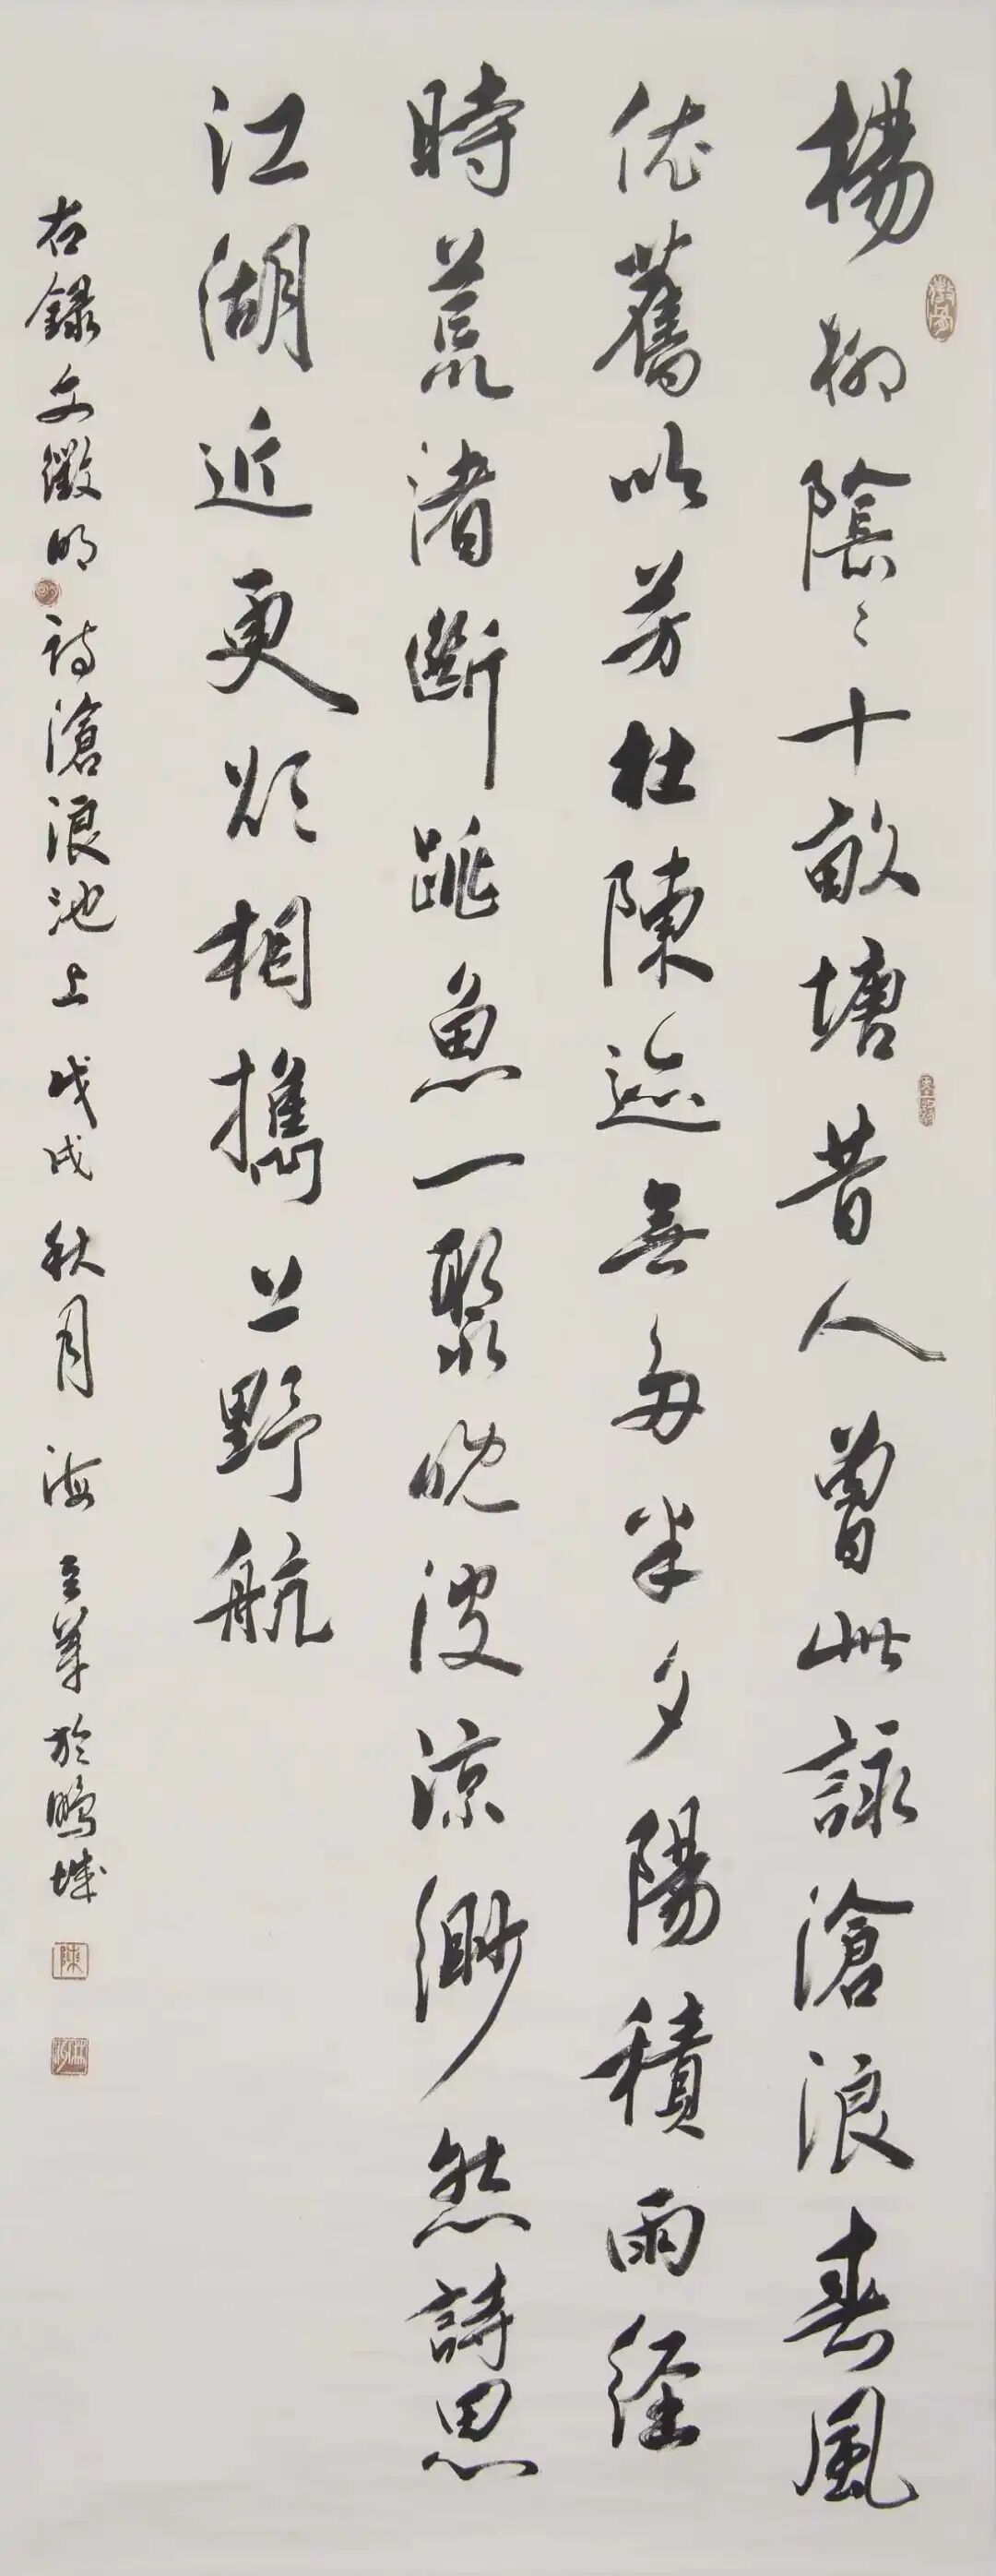 楊柳陰〻十畝塘昔人曾此詠滄浪春風
依舊吹芳杜陳迹無多半夕陽積雨経
時荒渚斷跳魚一聚晚波涼渺然詩思
江湖近更欲相攜上野航
右録文徵明詩滄浪池上戊戌秋月海於鵬城
陳